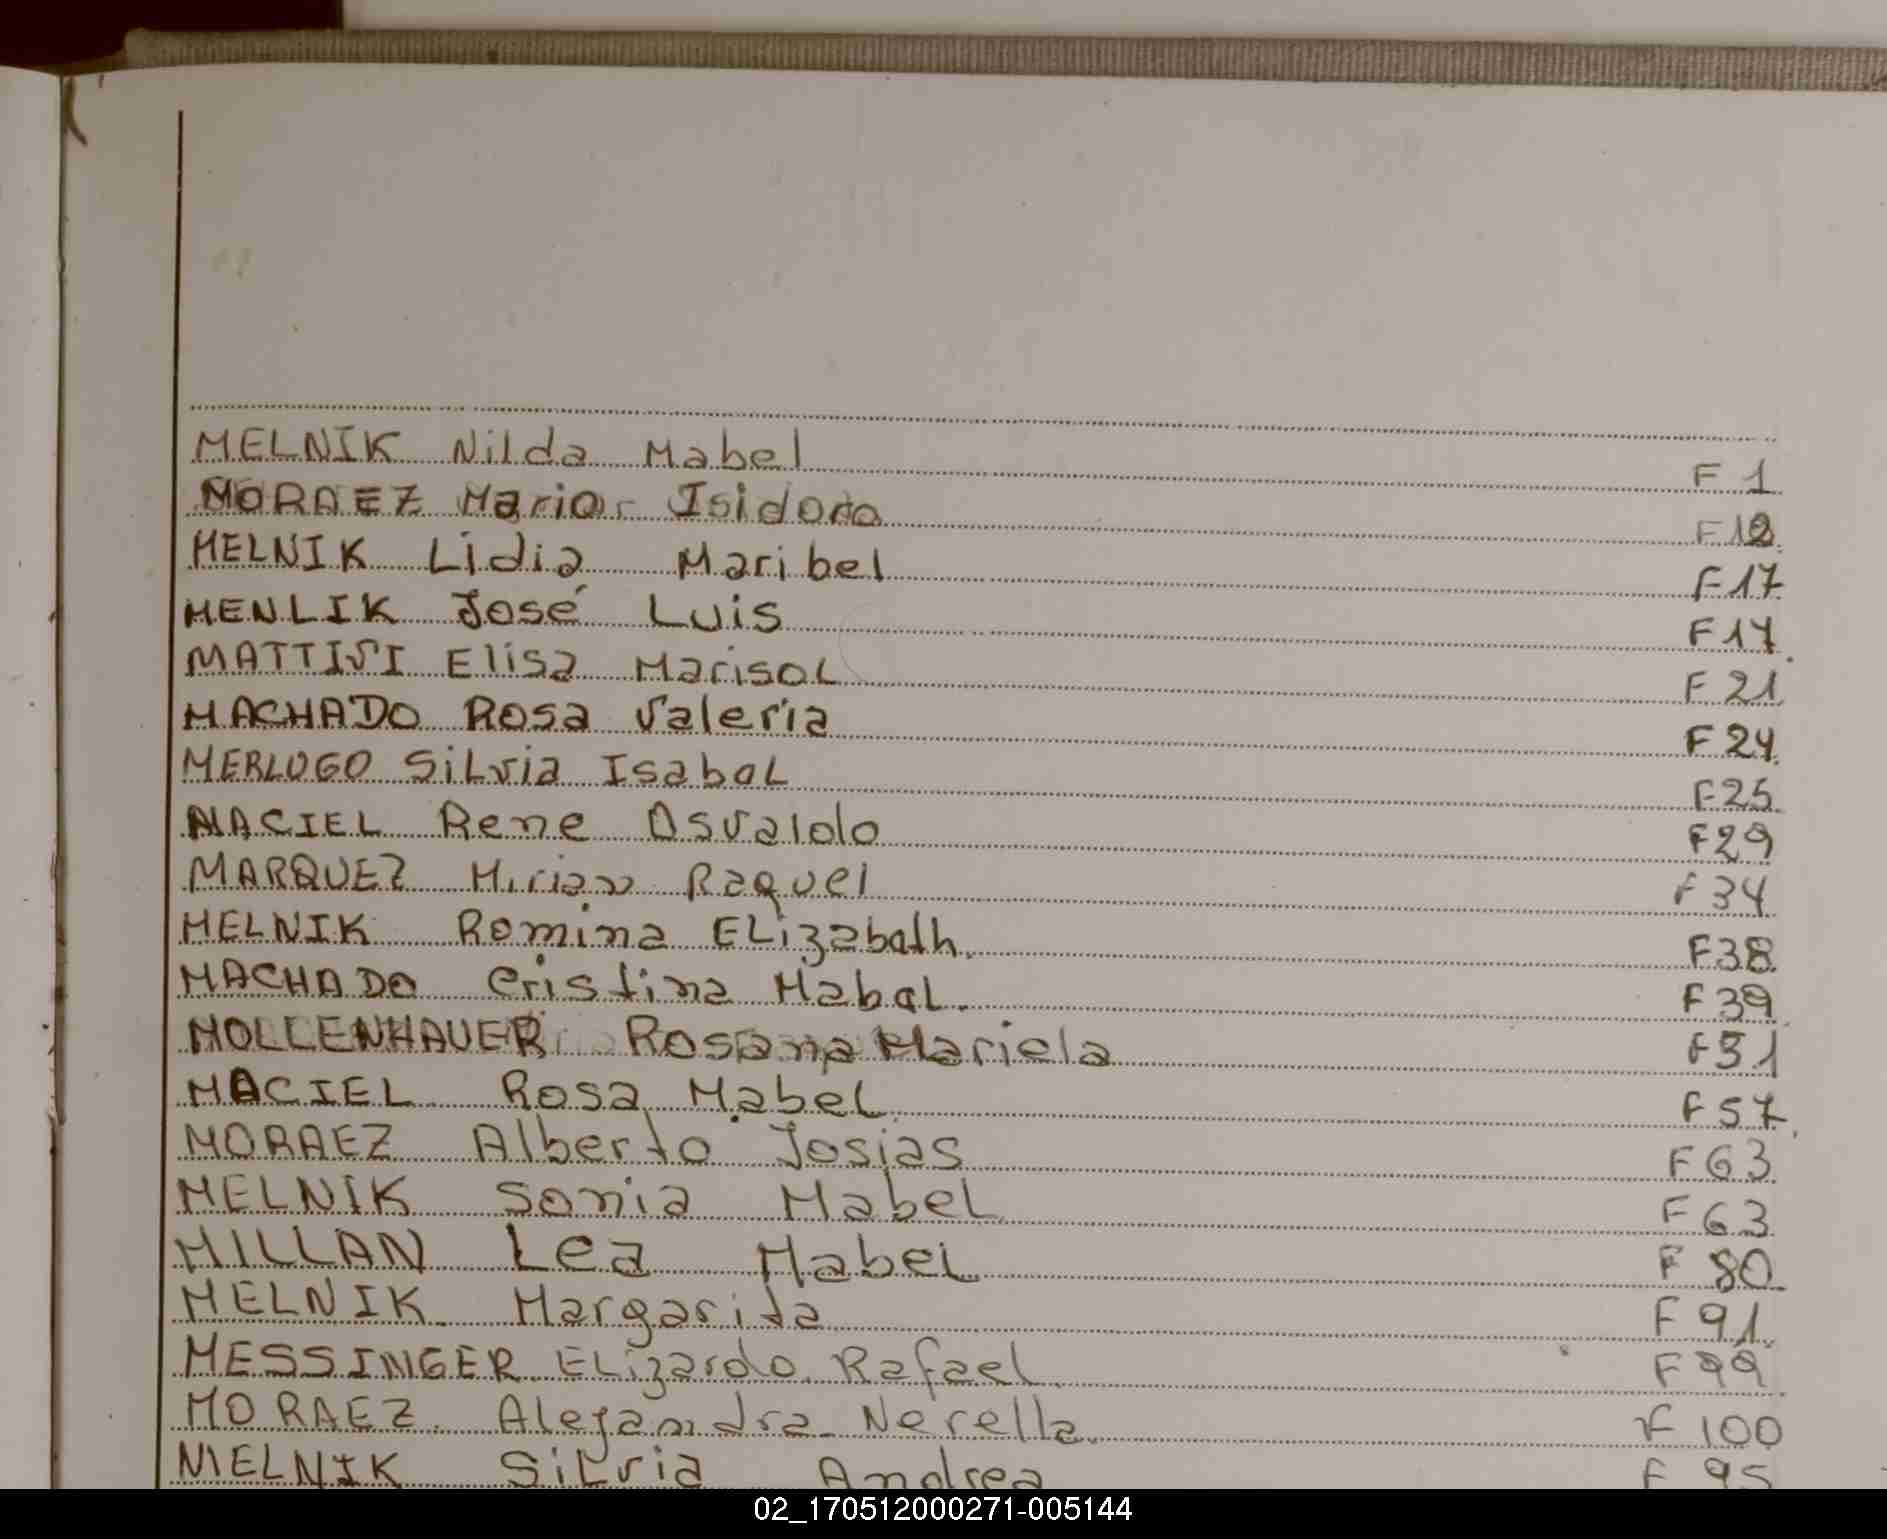 MELNIK Nilda Mabel F 1
MORAEZ Mario Isidoro F 12
MELNIK Lidia Maribel F 17
MENLIK José Luis F 17
MATTISI Elisa Marisol F 21
MACHADO Rosa Valeria F 24
MERLUGO Silvia Isabel F 25
MACIEL Rene Osvaldo F 29
MARQUEZ Mirian Raquel F 34
MELNIK Romina Elizabeth. F 38
MACHADO Cristina Mabel. F 39
MOLLENHAUER Rosana Mariela F 51
MACIEL Rosa Mabel F 57
MORAEZ Alberto Josias F 63
MELNIK Sonia Mabel F 63
MILLAN Lea Mabel F 80
MELNIK Margarita F 91
MESSINGER Elizardo Rafael F 99
MORAEZ Alejandra Nerella F 100
MELNIK Silvia Andrea F 95
02_170512000271-005144